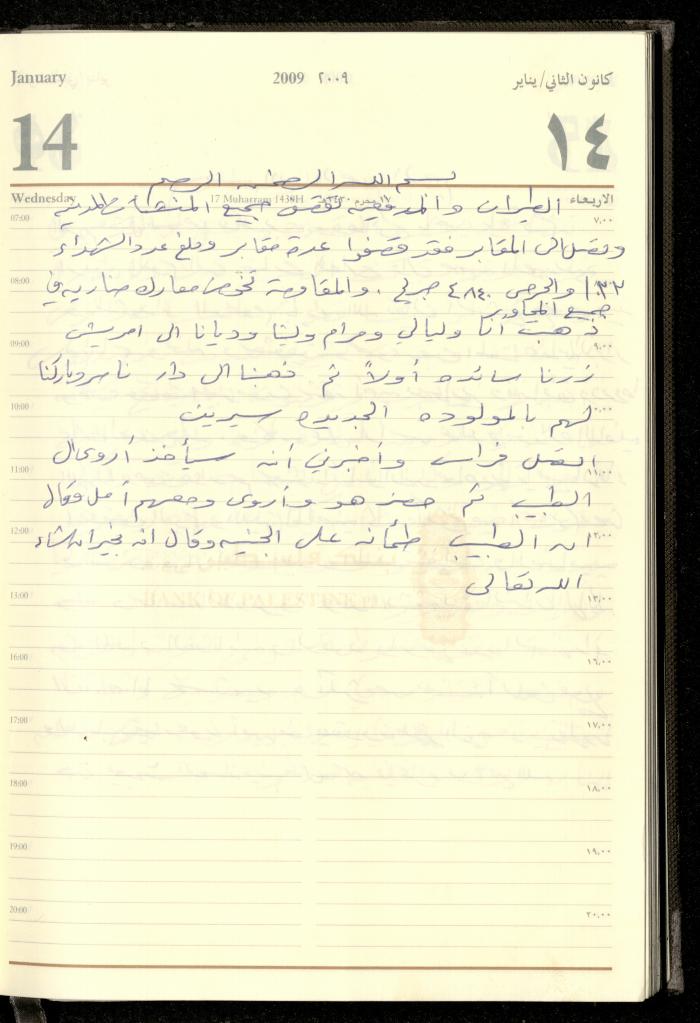 January
2009 ٢٠٠٩
كانون الثاني/يناير
14
١٤
بسم الله الرحمن الرحيم
Wednesday
17 Muharram 1430H
١٧ محرم ١٤٣٠هـ
الاربعاء
الطيران والمدفعية تقصف جميع المنشآت المدنية
07:00
٧,٠٠
وتصل الى المقابر فقد قصفوا عدة مقابر وبلغ عدد الشهداء
08:00
١٠٣٢ والجرحى ٤٨٤٠ جريح . والمقاومة تخوض معارك ضاريه في
جميع المحاور
09:00
٩,٠٠
ذهبت أنا وليالي ومرام ولينا وديانا الى
زرنا سائده أولاً ثم ذهبنا الى دار ناصر وباركنا
10:00
لهم بالمولوده الجديده سيرين
11:00
١١,٠٠
اتصل فراس وأخبرني أنه سيأخذ أروى الى
الطبيب ثم حضر هو وأروى ومعهم أمل وقال
12:00
ان الطبيب طمأنه على الجنين وقال انه بخير ان شاء
الله تعالى
13:00
١٣,٠٠
16:00
١٦,٠٠
17:00
١٧,٠٠
18:00
١٨,٠٠
19:00
١٩,٠٠
20:00
٢٠,٠٠